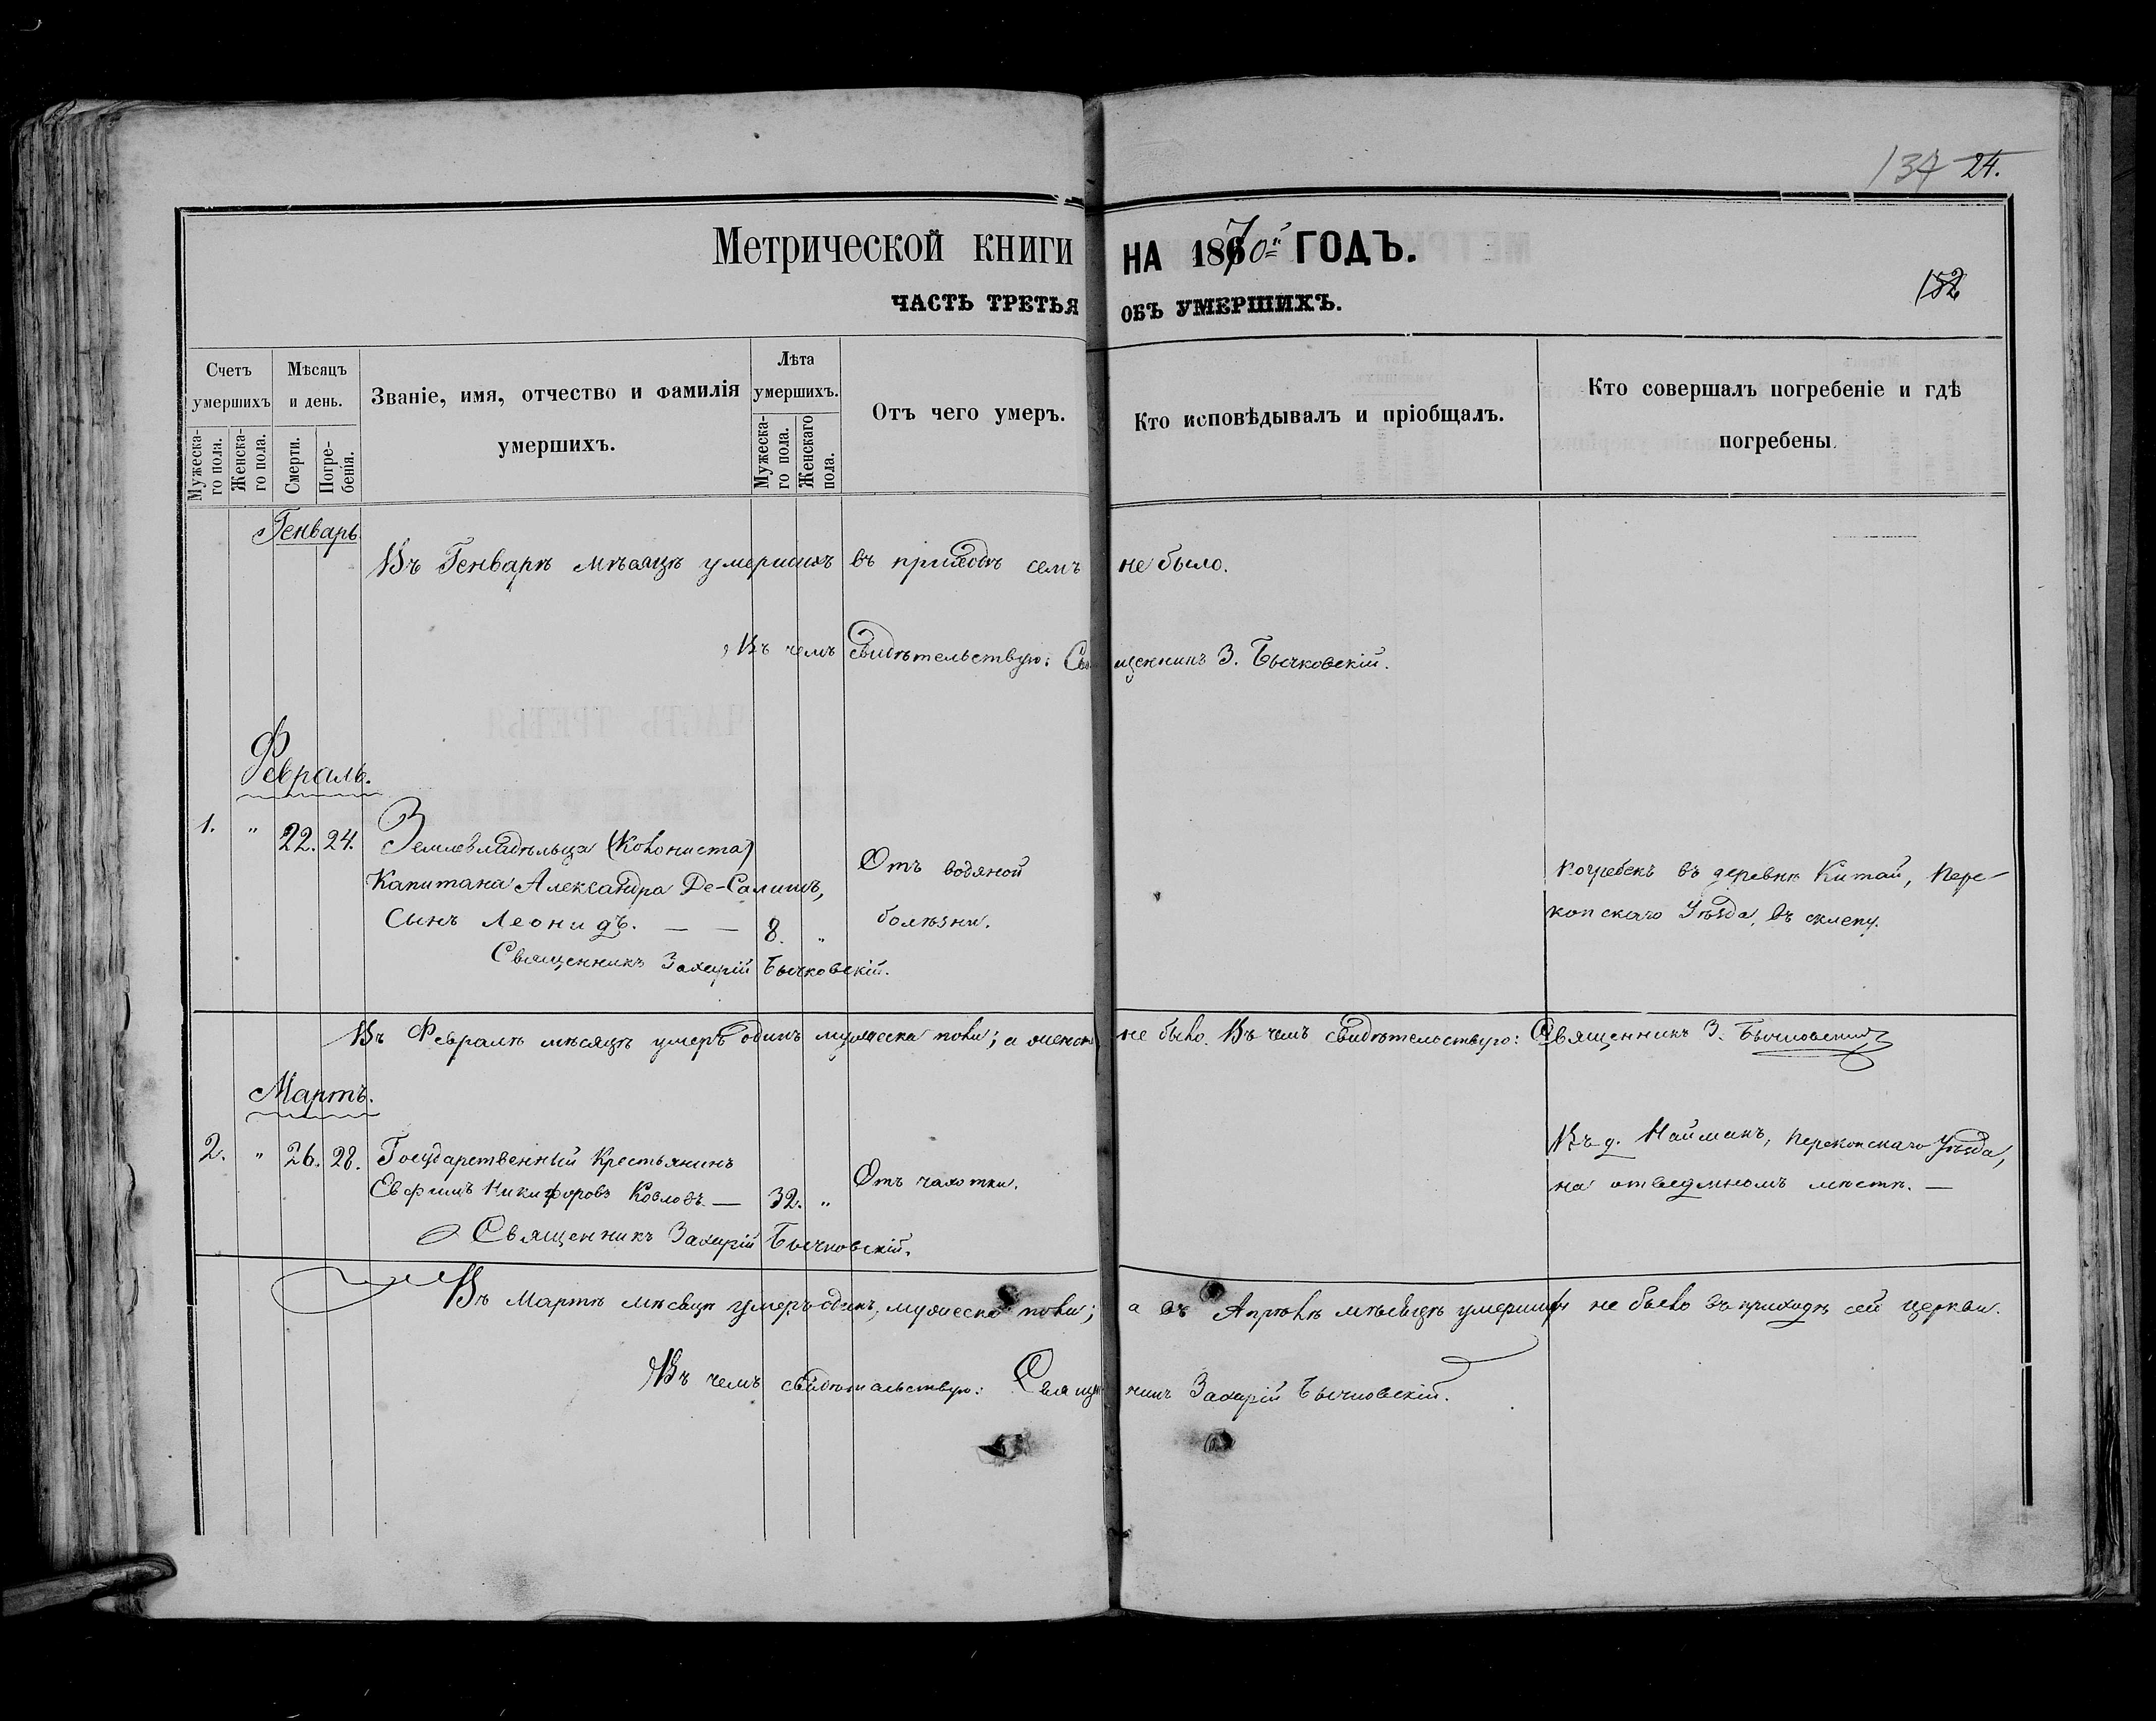 137 24.
Метрической книги НА 1870й ГОДЪ.
152
ЧАСТЬ ТРЕТЬЯ ОБЪ УМЕРШИХЪ.
Счетъ умершихъ
Мужеска-го пола.
Женска-го пола.
Мѣсяцъ и день.
Смерти.
Погре-бенія.
Званіе, имя, отчество и фамилія умершихъ.
Лѣта умершихъ.
Мужеска-го пола.
Женскаго пола.
Отъ чего умеръ.
Кто исповѣдывалъ и пріобщалъ.
Кто совершалъ погребеніе и гдѣ погребены
Генварь
Въ Генварѣ мѣсяцѣ умершихъ въ приходѣ семъ не было.
Въ чемъ свидѣтельствую: Священникъ З. Бычковскій.
Февраль.
1. " 22. 24. Землевладѣльца (Колониста)
Капитана Александра Де-Салишъ,
Сынъ Леонидъ. — — 8. "
Отъ водяной
болѣзни.
Погребенъ въ деревнѣ Китай, Пере-
копскаго Уѣзда, въ склепу.
Священникъ Захарій Бычковскій.
Въ Февралѣ мѣсяцѣ умеръ одинъ мужеска пола; а женск. не было. Въ чемъ свидѣтельствую: Священникъ З. Бычковскій
Мартъ.
2. " 26. 28. Государственный Крестьянинъ
Евфимъ Никифоровъ Козловъ. — 32. "
Отъ чахотки.
Въ д. Найманъ, Перекопскаго Уѣзда,
на отведенномъ мѣстѣ. —
Священникъ Захарій Бычковскій.
Въ Мартѣ мѣсяцѣ умеръ одинъ, мужеска пола; а въ Апрѣлѣ мѣсяцѣ умершихъ не было въ приходѣ сей церкви.
Въ чемъ свидѣтельствую: Священникъ Захарій Бычковскій.